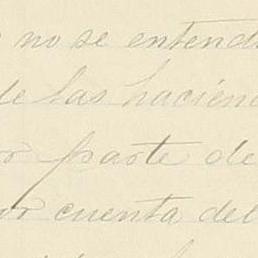 no se entend
de las hacien
or parte de
or cuenta del